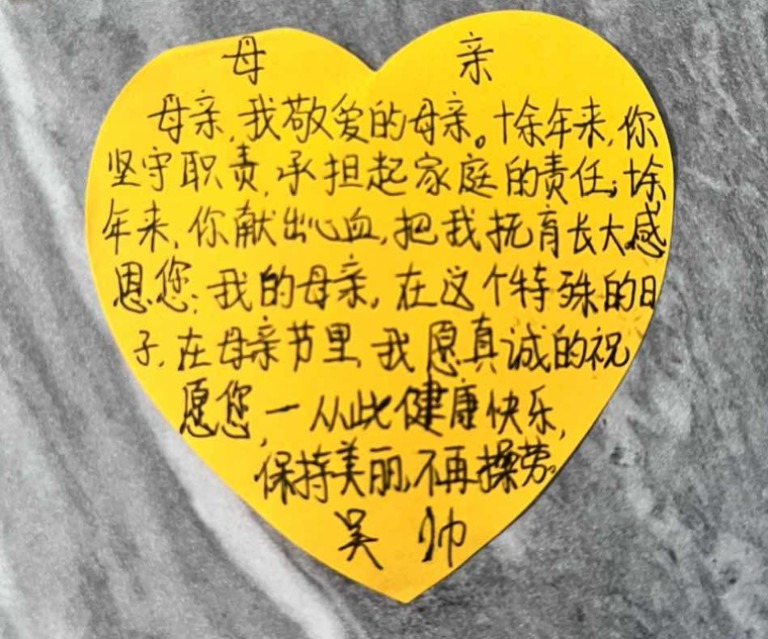 母 亲
母亲,我敬爱的母亲。十余年来,你
坚守职责,承担起家庭的责任;十余
年来,你献出心血,把我抚育长大感
恩您,我的母亲,在这个特殊的日
子,在母亲节里,我愿真诚的祝
愿您,一从此健康快乐,
保持美丽,不再操劳。
吴 帅